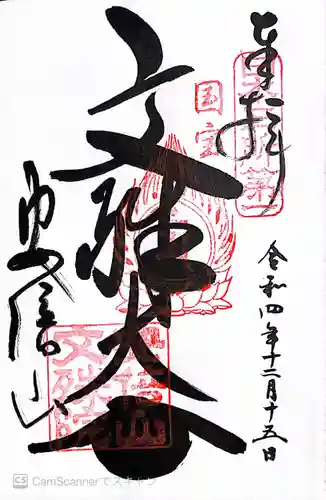 奉拝
国宝
文殊大
安倍山
文殊院
令和四年十二月十五日
CS CamScannerでスキャン